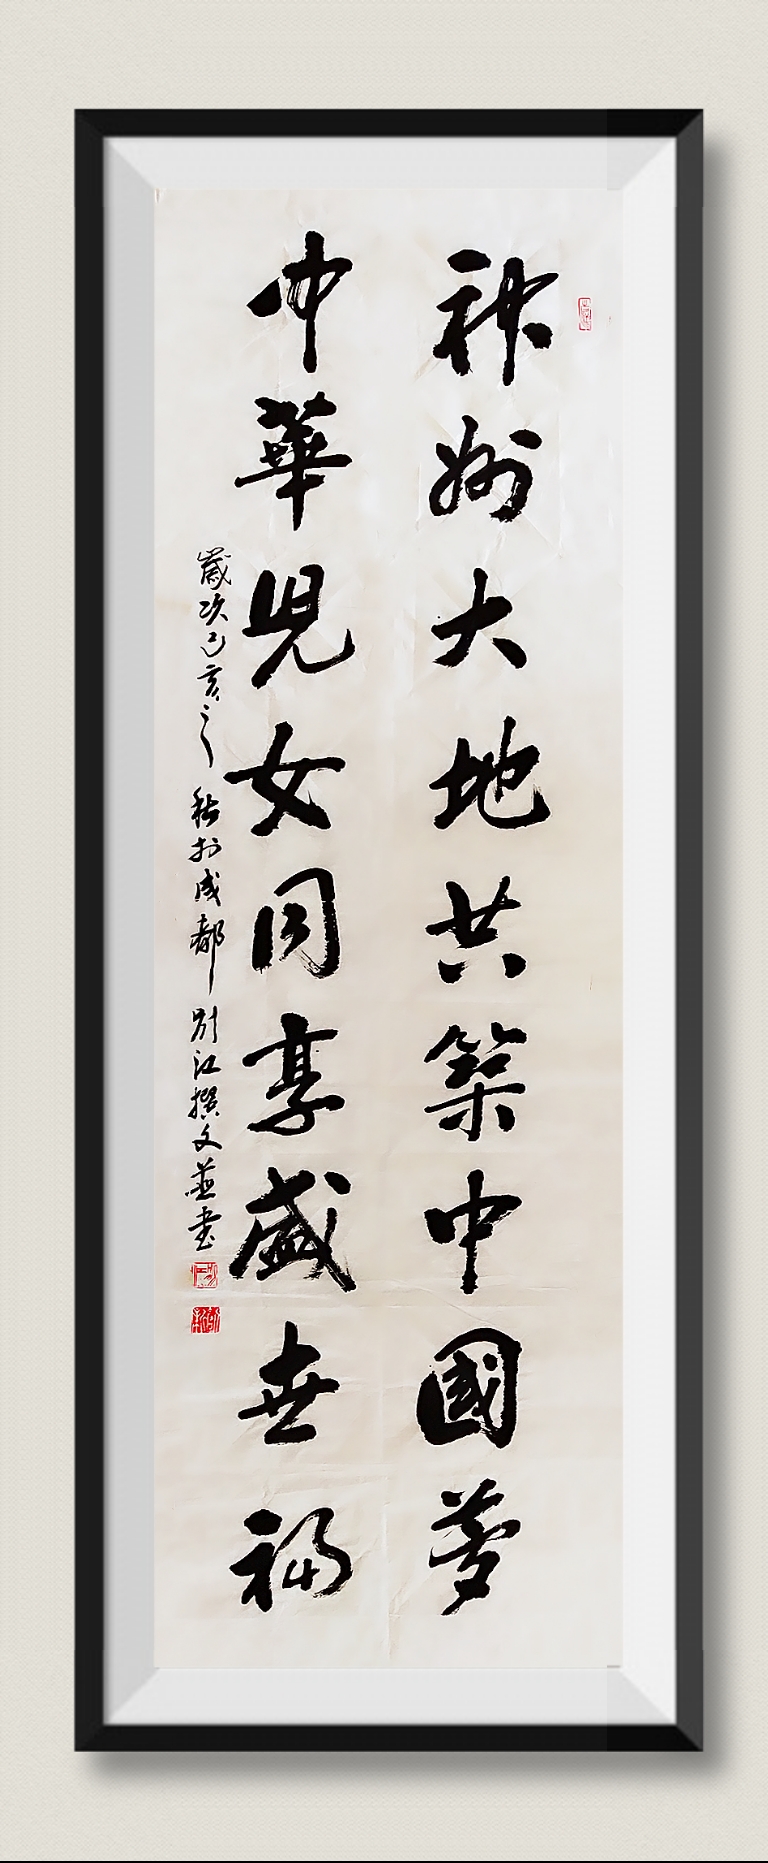 神州大地共築中國夢
中華兒女同享盛世福
歲次己亥之秋於成都別江撰文並書